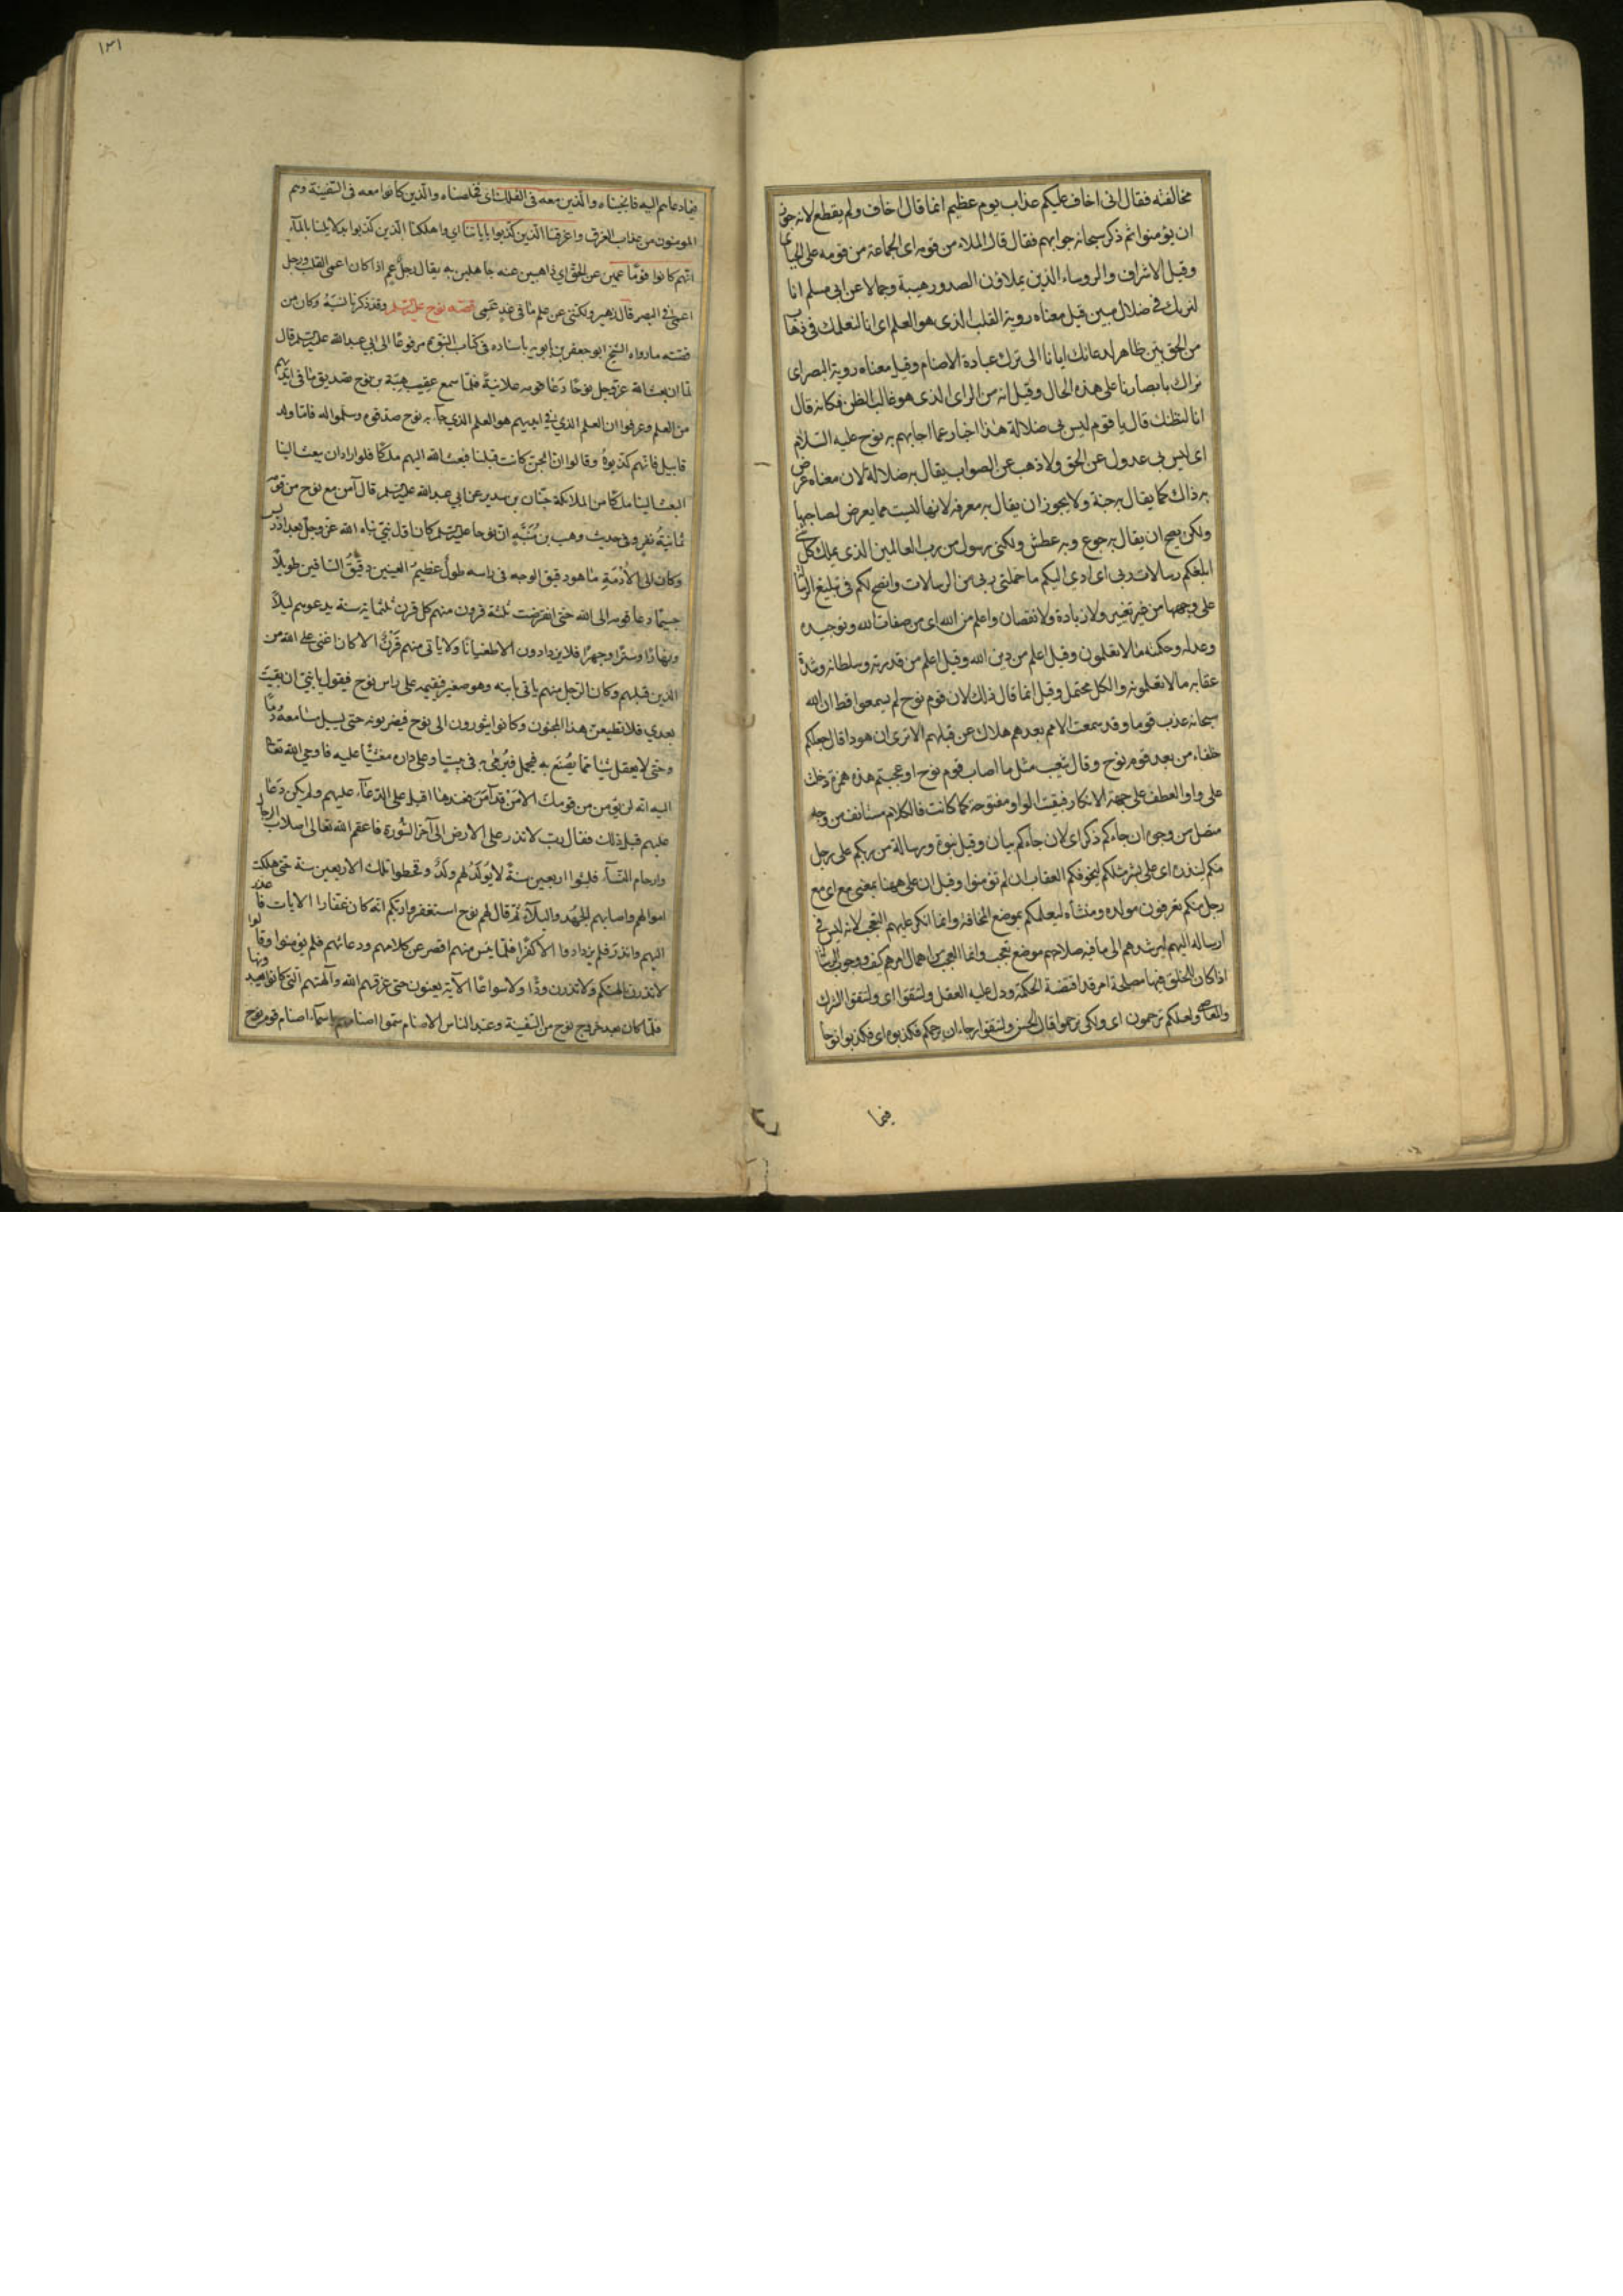 مخالفته فقال انى اخاف عليكم عذاب يوم عظيم انما قال اخاف ولم يقطع لانه جوز
ان يؤمنوا ثم ذكر سبحانه جوابهم فقال قال الملاء من قومه اى الجماعة من قومه على الجباى
وقيل الاشراف والروساء الذين يملاؤن الصدور هيبة وجمالا عن ابى مسلم انا
لنريك فى ضلال مبين قيل معناه روية القلب الذى هو العلم اى انا لنعلمك فى ذهاب
من الحق بين ظاهر لدعائك ايانا الى ترك عبادة الاصنام وقيل معناه روية البصر اى
نراك بابصارنا على هذه الحال وقيل انه من الراى الذى هو غالب الظن فكانه قال
انا لنظنك قال يا قوم ليس بى ضلالة هذا اخبار عما اجابهم به نوح عليه السلام
اى ليس بى عدول عن الحق ولا ذهب عن الصواب يقال به ضلالة لان معناه عرض
به ذاك كما يقال به جنة ولا يجوز ان يقال به معرفه لانها ليست مما يعرض لصاحبها
ولكن يصح ان يقال به جوع وبه عطش ولكنى رسول من رب العالمين الذى يملك كل شئ
ابلغكم رسالات ربى اى ادى اليكم ما حملنى ربى من الرسالات وانصح لكم فى تبليغ الرسا
على وجهها من غير تغيير ولا زيادة ولا نقصان واعلم من الله اى من صفات الله وتوحيده
وعدله وحكمته ما لا تعلمون وقيل اعلم من دين الله وقيل اعلم من قدرته وسلطانه وشدة
عقابه ما لا تعلمونه والكل محتمل وقيل انما قال ذاك لان قوم نوح لم يسمعوا قط ان الله
سبحانه عذب قوما وقد سمعت الامم بعدهم هلاك من قبلهم الا ترى ان هودا قال جعلكم
خلفاء من بعد قوم نوح وقال شعيب مثل ما اصاب قوم نوح اوعجبتم هذه همزة دخلت
على واو العطف على جهة الانكار فبقيت الواو مفتوحة كما كانت فالكلام مستانف من وجه
متصل من وجه ان جاءكم ذكر اى لان جاءكم بيان وقيل نبوة ورسالة من ربكم على رجل
منكم لينذركم اى على بشر مثلكم ليخوفكم العقاب ان لم تؤمنوا وقيل ان على ههنا بمعنى مع اى مع
رجل منكم تعرفون مولده ومنشأه ليعلمكم بموضع المخافة وانما انكر عليهم التعجب لانه ليس فى
ارساله اليهم ليرشدهم الى ما فيه صلاحهم موضع تعجب وانما العجب من اهمال امرهم كيف ووجوب الرسالة
اذا كان للخلق فيها مصلحة امر قد اقتضته الحكمة ودل عليه العقل ولتتقوا اى ولتتقوا الشرك
والمعاصى ولعلكم ترحمون اى ولكى ترحموا قال الحسن ولتتقوا رجاء ان يرحمكم فكذبوه اى فكذبوا نوحا
فيما
١٣١
فيما دعاهم اليه فانجيناه والذين معه فى الفلك اى فخلصناه والذين كانوا معه فى السفينة وهم
المومنون من عذاب الغرق واغرقنا الذين كذبوا باياتنا اى واهلكنا الذين كذبوا بدلايلنا بالمآء
انهم كانوا قومًا عمين عن الحق اى ذاهبين عنه جاهلين به يقال رجل عم اذا كان اعمى القلب ورجل
اعمى فى البصر قال زهير ولكننى عن علم ما فى غدٍ عَمى قصة نوح عليه السلم وقد ذكرنا نسبه وكان من
قصته ما رواه الشيخ ابو جعفر بن بابويه باسناده فى كتاب النبوة مرفوعًا الى ابى عبدالله عليه السلم قال
لما ان بعث الله عز وجل نوحًا دعا قومه علانيةً فلمّا سمع عقب هبة بن نوح تصديق ما فى ايديهم
من العلم وعرفوا ان العلم الذى فى ايديهم هو العلم الذى جآء به نوح صدقوه وسلموا له فامّا ولد
قابيل فانهم كذبوهُ وقالوا ان الجن كانت قبلنا فبعث الله اليهم ملكًا فلو اراد ان يبعث الينا
لبعث الينا ملكًا من الملائكة حنّان بن سدير عن ابى عبدالله عليه السلم قال آمن مع نوح من قومه
ثمانيةُ نفر وفى حديث وهب بن منبه ان نوحا عليه السلم كان اول نبىّ نباه الله عز وجل بعد ادريس
وكان الى الأُدْمَةِ ما هو دقيق الوجه فى راسه طول عظيم العينين دقيق الساقين طويلاً
جسيمًا دعا قومه الى الله حتى انقرضت ثلثة قرون منهم كل قرن ثلثمائة سنة يدعوهم ليلاً
ونهارًا وسرًّا وجهرًا فلا يزدادون الا طغيانًا ولا ياتى منهم قَرْنٌ الا كان اعتى على الله من
الذين قبلهم وكان الرجل منهم ياتى بابنه وهو صغير فيقيمه على راس نوح فيقول يا بنىّ ان بقيتَ
بعدى فلا تطيعنّ هذا المجنون وكانوا يثورون الى نوح فيضربونه حتى يسيل مسامعه دمًا
وحتى لا يعقل شيئا مما يُصْنَع به فيحمل فيُرمى به فى بيت او على باب داره مغشيًّا عليه فاوحى الله تعا
اليه انه لن يؤمن من قومك الا من قد آمَن فعندها اقبل على الدعآء عليهم ولم يكن دَعَا
عليهم قبل ذلك فقال رب لا تذر على الارض الى آخر السُّورة فاعقم الله تعالى اصلاب الرجال
وارحام النسآء فلبثوا اربعين سنةً لا يُولَدُ لهم ولدٌ وقحطوا تلك الاربعين سنة حتى هلكت
اموالهم واصابهم الجَهْد والبلآء ثم قال لهم نوح استغفروا ربكم انه كان غفارا الايات فاعذر
اليهم وانذر فلم يزدادوا الا كفرًا فلمّا يئس منهم اقصر عن كلامهم ودعائهم فلم يؤمنوا وقالوا
لا تذرن آلهتكم ولا تذرن ودًّا ولا سواعًا الآية يعنون حتى غرقهم الله وآلهتهم التى كانوا يعبدونها
فلمّا كان بعد خروج نوح من السفينة وعبد الناس الاصنام سمّوا اصنامهم باسمآء اصنام قوم نوح